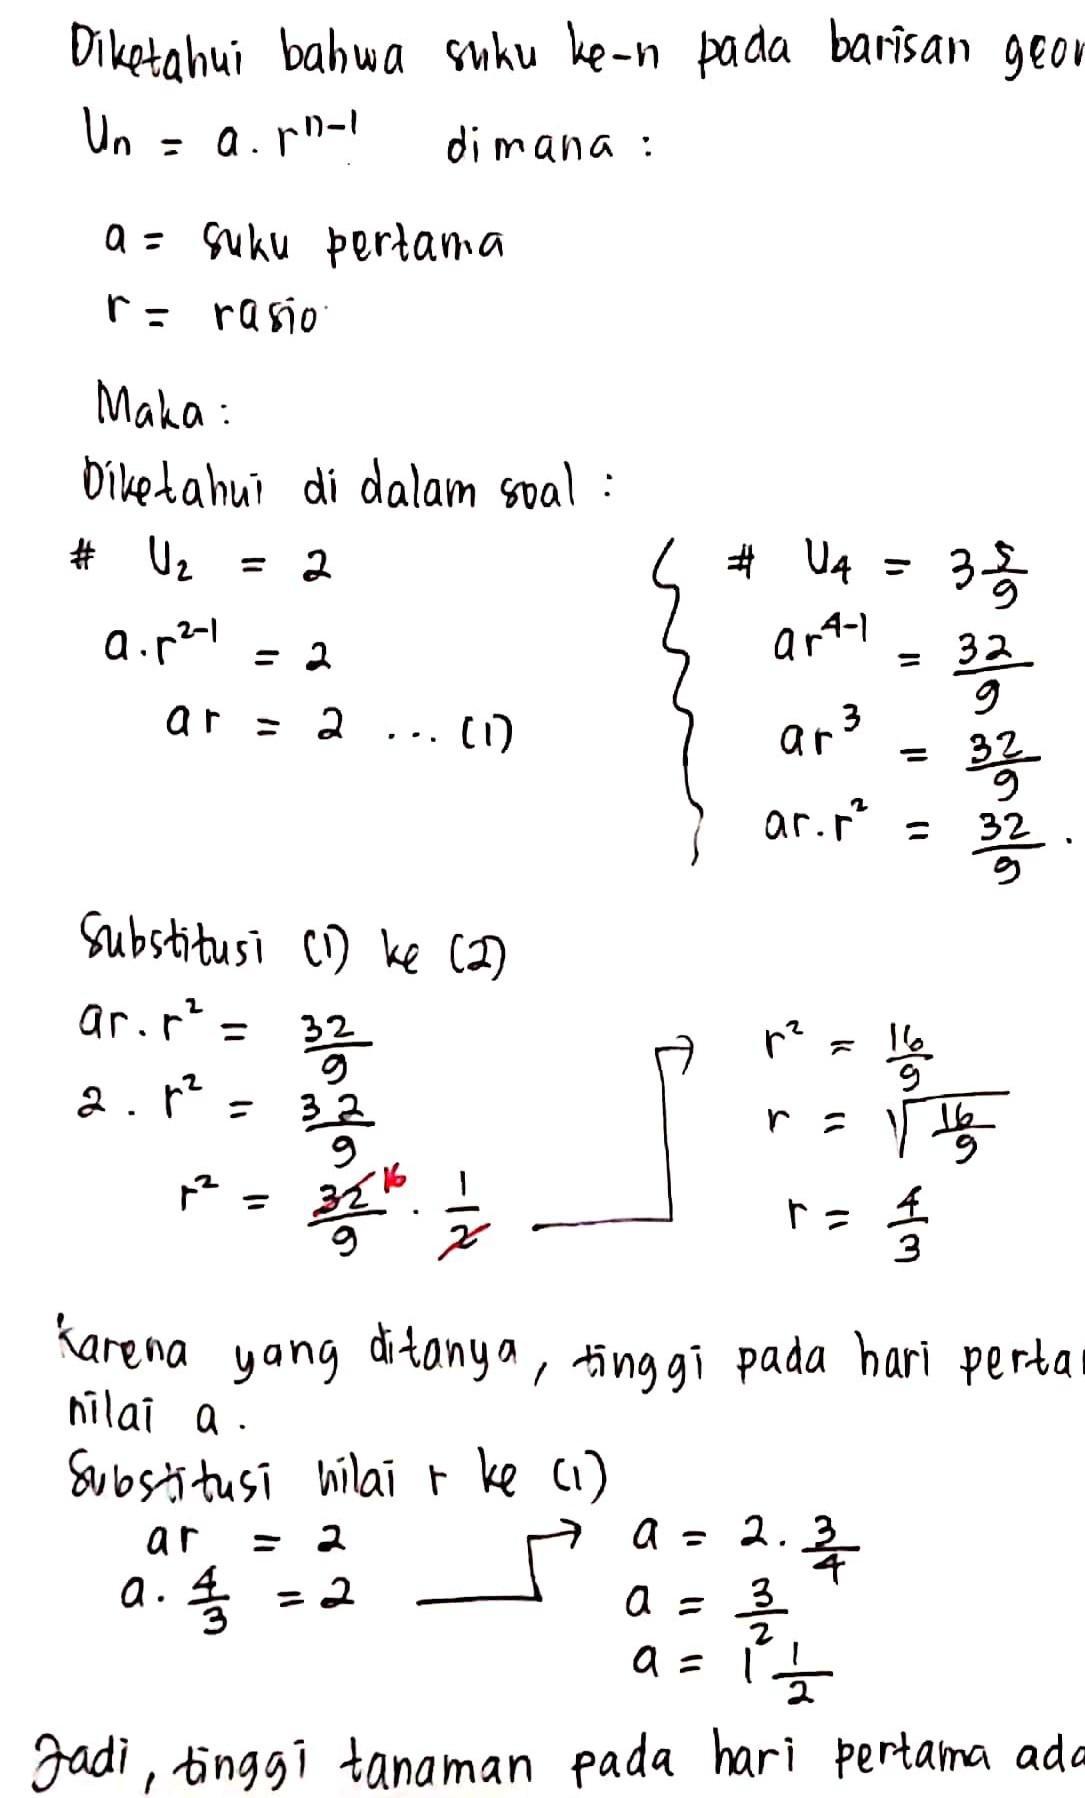 Diketahui bahwa suku ke-n pada barisan geo
Uₙ = a . rⁿ⁻¹ dimana :
a = suku pertama
r = rasio
Maka :
Diketahui di dalam soal :
# U₂ = 2
a . r²⁻¹ = 2
ar = 2 ... (1)
# U₄ = 3 5/9
ar⁴⁻¹ = 32/9
ar³ = 32/9
ar . r² = 32/9 .
Substitusi (1) ke (2)
ar . r² = 32/9
2 . r² = 32/9
r² = 32/9 16 . 1/2
r² = 16/9
r = √16/9
r = 4/3
Karena yang ditanya, tinggi pada hari perta
nilai a .
Substitusi nilai r ke (1)
ar = 2
a . 4/3 = 2
a = 2 . 3/4
a = 3/2
a = 1 1/2
Jadi, tinggi tanaman pada hari pertama ada